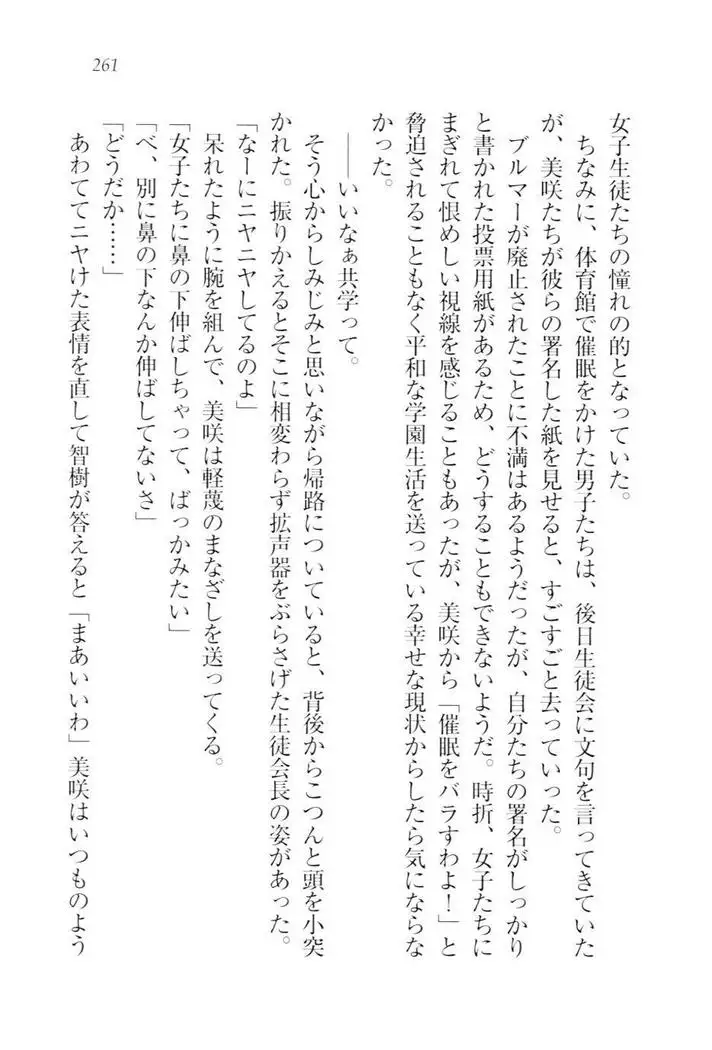 261
女子生徒たちの憧れの的となっていた。
ちなみに、体育館で催眠をかけた男子たちは、後日生徒会に文句を言ってきていた
が、美咲たちが彼らの署名した紙を見せると、すごすごと去っていった。
ブルマーが廃止されたことに不満はあるようだったが、自分たちの署名がしっかり
と書かれた投票用紙があるため、どうすることもできないようだ。時折、女子たちに
まぎれて恨めしい視線を感じることもあったが、美咲から「催眠をバラすわよ！」と
脅迫されることもなく平和な学園生活を送っている幸せな現状からしたら気にならな
かった。
――いいなぁ共学って。
そう心からしみじみと思いながら帰路についていると、背後からこつんと頭を小突
かれた。振りかえるとそこに相変わらず拡声器をぶらさげた生徒会長の姿があった。
「なーにニヤニヤしてるのよ」
呆れたように腕を組んで、美咲は軽蔑のまなざしを送ってくる。
「女子たちに鼻の下伸ばしちゃって、ばっかみたい」
「べ、別に鼻の下なんか伸ばしてないさ」
「どうだか……」
あわててニヤけた表情を直して智樹が答えると「まあいいわ」美咲はいつものよう